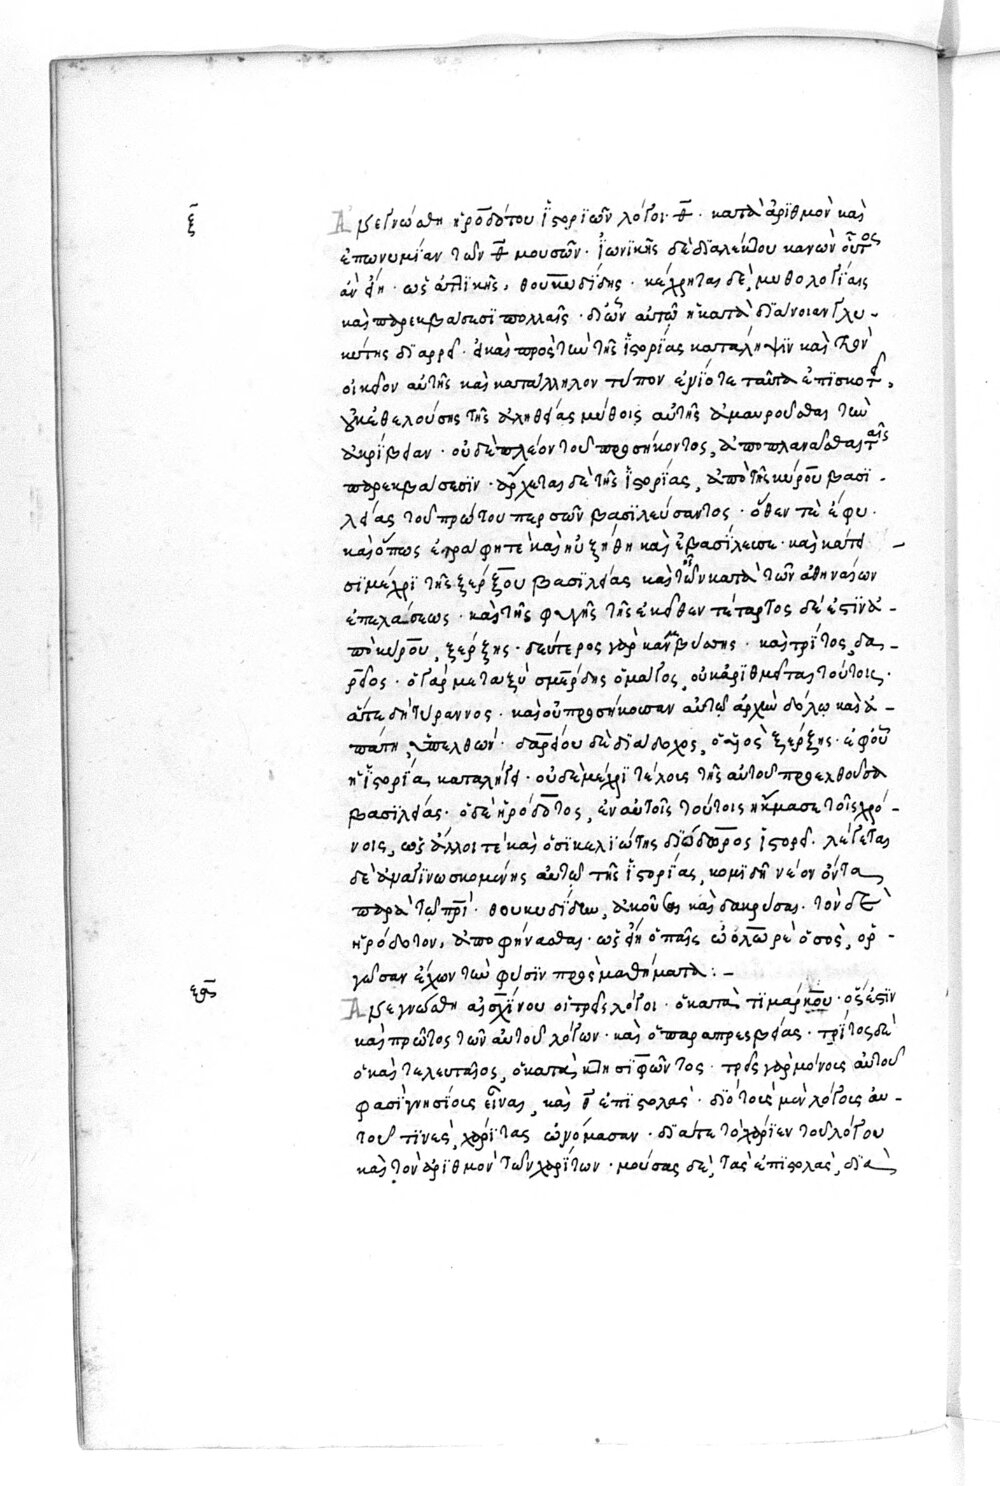 ξ
Ἀνεγνώσθη ἡροδότου ἱστοριῶν λόγοι θ̅ · κατὰ ἀριθμὸν καὶ
ἐπωνυμίαν τῶν θ̅ μουσῶν · ἰωνικῆς δὲ διαλέκτου κανὼν οὗτος
ἂν εἴη · ὡς ἀττικῆς, θουκυδίδης · κέχρηται δὲ μυθολογίαις
καὶ παρεκβάσεσι πολλαῖς · δι' ὧν αὐτῷ ἡ κατὰ διάνοιαν γλυ-
κύτης διαρρεῖ · εἰ καὶ πρὸς τὴν τῆς ἱστορίας κατάληψιν καὶ τὸν
οἰκεῖον αὐτῆς καὶ κατάλληλον τύπον ἐνίοτε ταῦτα ἐπισκοτεῖ,
οὐκ ἐθελούσης τῆς ἀληθείας μύθοις αὐτῆς ἀμαυροῦσθαι τὴν
ἀκρίβειαν · οὐδὲ πλέον τοῦ προσήκοντος, ἀποπλανᾶσθαι ταῖς
παρεκβάσεσιν · ἄρχεται δὲ τῆς ἱστορίας, ἀπὸ τῆς κύρου βασι-
λείας τοῦ πρώτου περσῶν βασιλεύσαντος · ὅθεν τε ἔφυ ·
καὶ ὅπως ἐτράφη τε καὶ ηὐξήθη καὶ ἐβασίλευσε · καὶ κάτει-
σι μέχρι τῆς ξέρξου βασιλείας καὶ τῆς κατὰ τῶν ἀθηναίων
ἐπελάσεως · καὶ τῆς φυγῆς τῆς ἐκεῖθεν τέταρτος δέ ἐστιν ἀ-
πὸ κύρου, ξέρξης · δεύτερος γὰρ καμβύσης · καὶ τρίτος, δα-
ρεῖος · ὁ γὰρ μεταξὺ σμέρδης ὁ μάγος, οὐκ ἀριθμεῖται τούτοις ·
ἅτε δὴ τύραννος · καὶ οὐ προσήκουσαν αὐτῷ ἀρχὴν δόλῳ καὶ ἀ-
πάτῃ, ὑπελθών · δαρείου δὲ διάδοχος, ὁ υἱὸς ξέρξης · ἐφ' οὗ
ἡ ἱστορία καταλήγει · οὐδὲ μέχρι τέλους τῆς αὐτοῦ προελθοῦσα
βασιλείας · ὁ δὲ ἡρόδοτος, ἐν αὐτοῖς τούτοις ἤκμασε τοῖς χρό-
νοις, ὡς ἄλλοι τε καὶ ὁ σικελιώτης διόδωρος ἱστορεῖ · λέγεται
δὲ ἀναγινωσκομένης αὐτῷ τῆς ἱστορίας, κομιδῇ νέον ὄντα
παρὰ τῷ πρι̅ · θουκυδίδην, ἀκοῦσαι καὶ δακρῦσαι · τὸν δὲ
ἡρόδοτον, ἀποφήνασθαι · ὡς εἴη ὁ παῖς ὦ ὄλωρε ὁ σὸς, ὀρ-
γῶσαν ἔχων τὴν φύσιν πρὸς μαθήματα : -
ξα
Ἀνεγνώσθη αἰσχίνου οἱ τρεῖς λόγοι · ὁ κατὰ τιμάρχου · ὅς ἐστιν
καὶ πρῶτος τῶν αὐτοῦ λόγων · καὶ ὁ παραπρεσβείας · τρίτος δὲ
ὁ καὶ τελευταῖος, ὁ κατὰ κτησιφῶντος · τρεῖς γὰρ μόνους αὐτοῦ
φασὶ γνησίους εἶναι, καὶ θ̅ ἐπιστολάς · διὸ τοὺς μὲν λόγους αὐ-
τοῦ τινες, χάριτας ὠνόμασαν · διά τε τὸ χάριεν τοῦ λόγου
καὶ τὸν ἀριθμὸν τῶν χαρίτων · μούσας δὲ, τὰς ἐπιστολὰς, διὰ